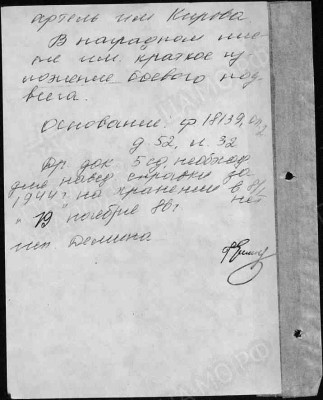 артель им Кирова
В наградном лис
те им. краткое из
ложение боевого под
вига.
Основание: ф 18139, оп 2
д 52, л. 32
Др док. 5 сд, необход
для навед справки за
1944 г на хранение в а/
нет
" 19 " ноября 86 г
исп Демина